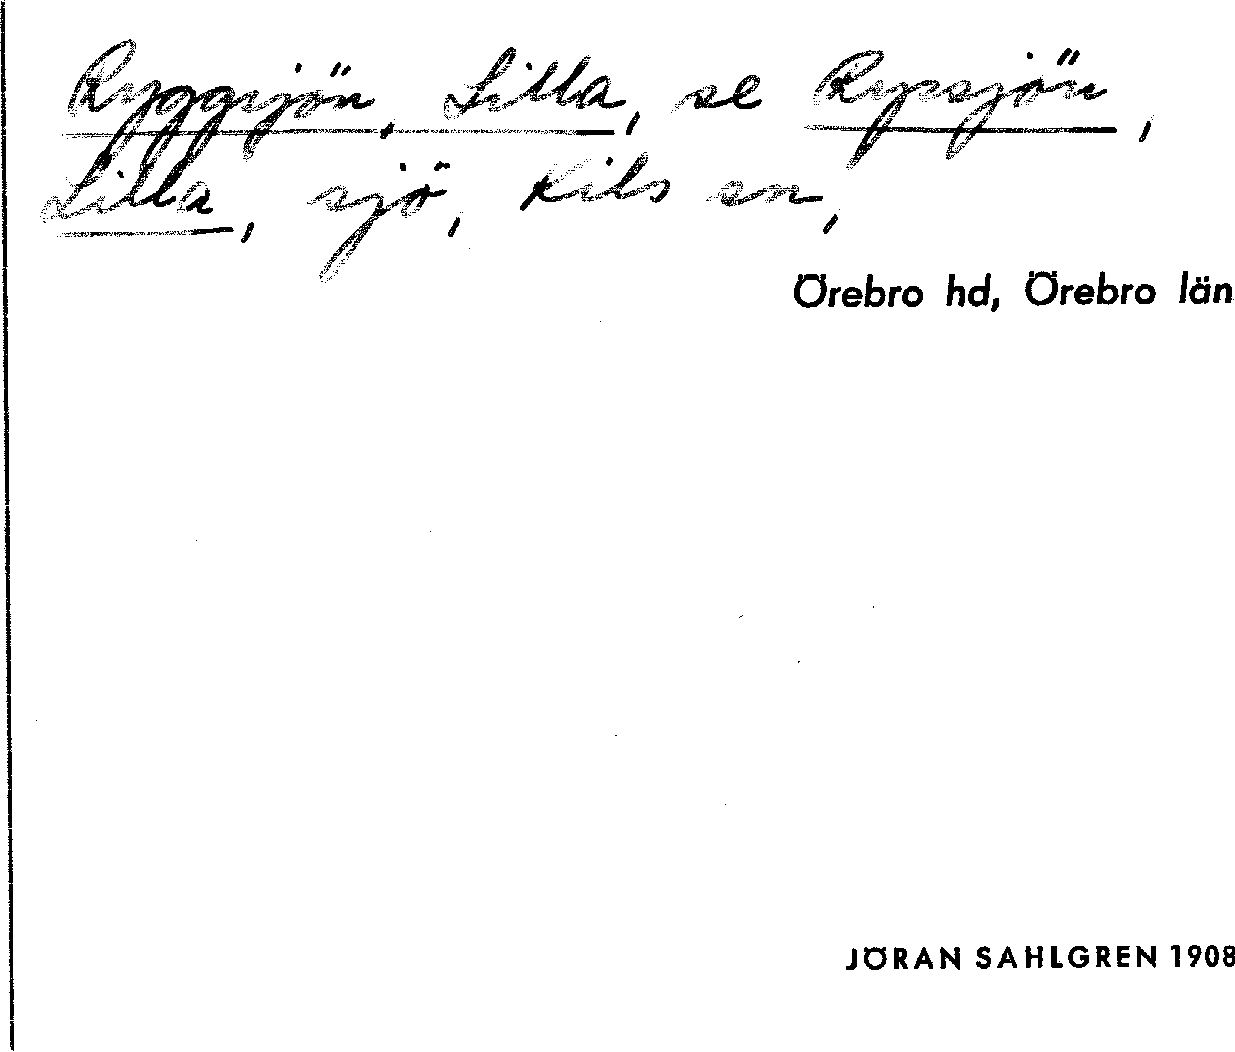 Ryggsjön, Lilla, se Rypsjön,
Lilla, sjö, Kils sn,
Örebro hd, Örebro län
JÖRAN SAHLGREN 1908